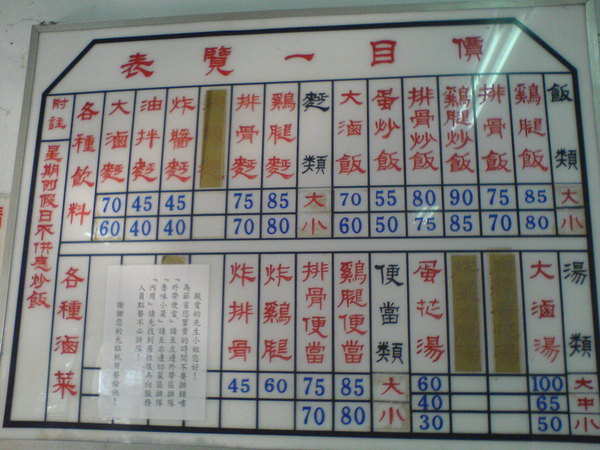 價目一覽表
飯類 大 小
雞腿飯 85 80
排骨飯 75 70
雞腿炒飯 90 85
排骨炒飯 80 75
蛋炒飯 55 50
大滷飯 70 60
麵類 大 小
雞腿麵 85 80
排骨麵 75 70
炸醬麵 45 40
油拌麵 45 40
大滷麵 70 60
各種飲料
湯類 大 中 小
大滷湯 100 65 50
蛋花湯 60 40 30
便當類 大 小
雞腿便當 85 80
排骨便當 75 70
炸雞腿 60
炸排骨 45
親愛的先生小姐您好！
為節省您寶貴的時間不要排錯嘍
「外帶便當」請至左邊外帶區排隊
「魯味小菜」請至右邊切菜區排隊
「內用」請先找到座位後再向服務
人員點餐不必排隊！
謝謝您的光臨祝用餐愉快！
各種滷菜
附註 星期例假日不供應炒飯